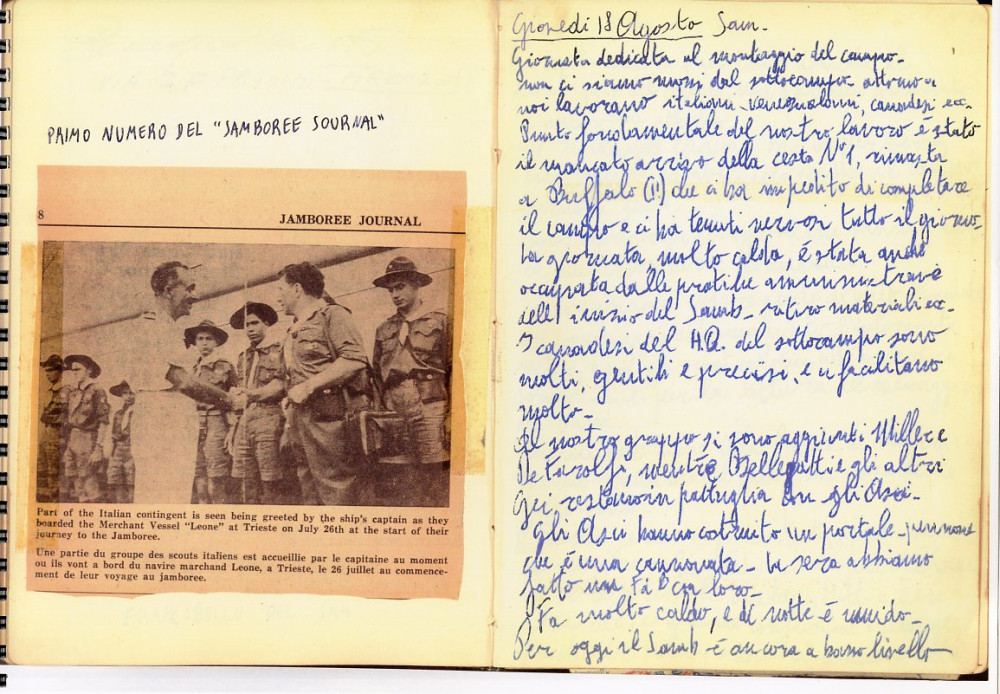 PRIMO NUMERO DEL "JAMBOREE JOURNAL"
8
JAMBOREE JOURNAL
Part of the Italian contingent is seen being greeted by the ship's captain as they
boarded the Merchant Vessel "Leone" at Trieste on July 26th at the start of their
journey to the Jamboree.
Une partie du groupe des scouts italiens est accueillie par le capitaine au moment
ou ils vont a bord du navire marchand Leone, a Trieste, le 26 juillet au commence-
ment de leur voyage au jamboree.
Giovedi 18 Agosto Jam.
Giornata dedicata al montaggio del campo_
non ci siamo mossi dal sottocampo attorno a
noi lavorano italiani venezualani, canadesi ecc.
Punto fondamentale del nostro lavoro è stato
il mancato arrivo della cesta N° 1, rimasta
a Buffalo (!!) che ci ha impedito di completare
il campo e ci ha tenuti nervosi tutto il giorno.
La giornata, molto calda, è stata anche
occupata dalle pratiche amministrative
dell'inizio del Jamb_ ritiro materiali ecc_
I canadesi del H.Q. del sottocampo sono
molti, gentili e precisi, e ci facilitano
molto_
Al nostro gruppo si sono aggiunti Miller e
mentre Bellegatti e gli altri
Gei restano in pattuglia con gli Asci_
Gli Asci hanno costruito un portale
che è una cannonata_ la sera abbiamo
fatto un Fà D con loro_
Fa molto caldo, e di notte è umido_
Per oggi il Jamb è ancora a basso livello_